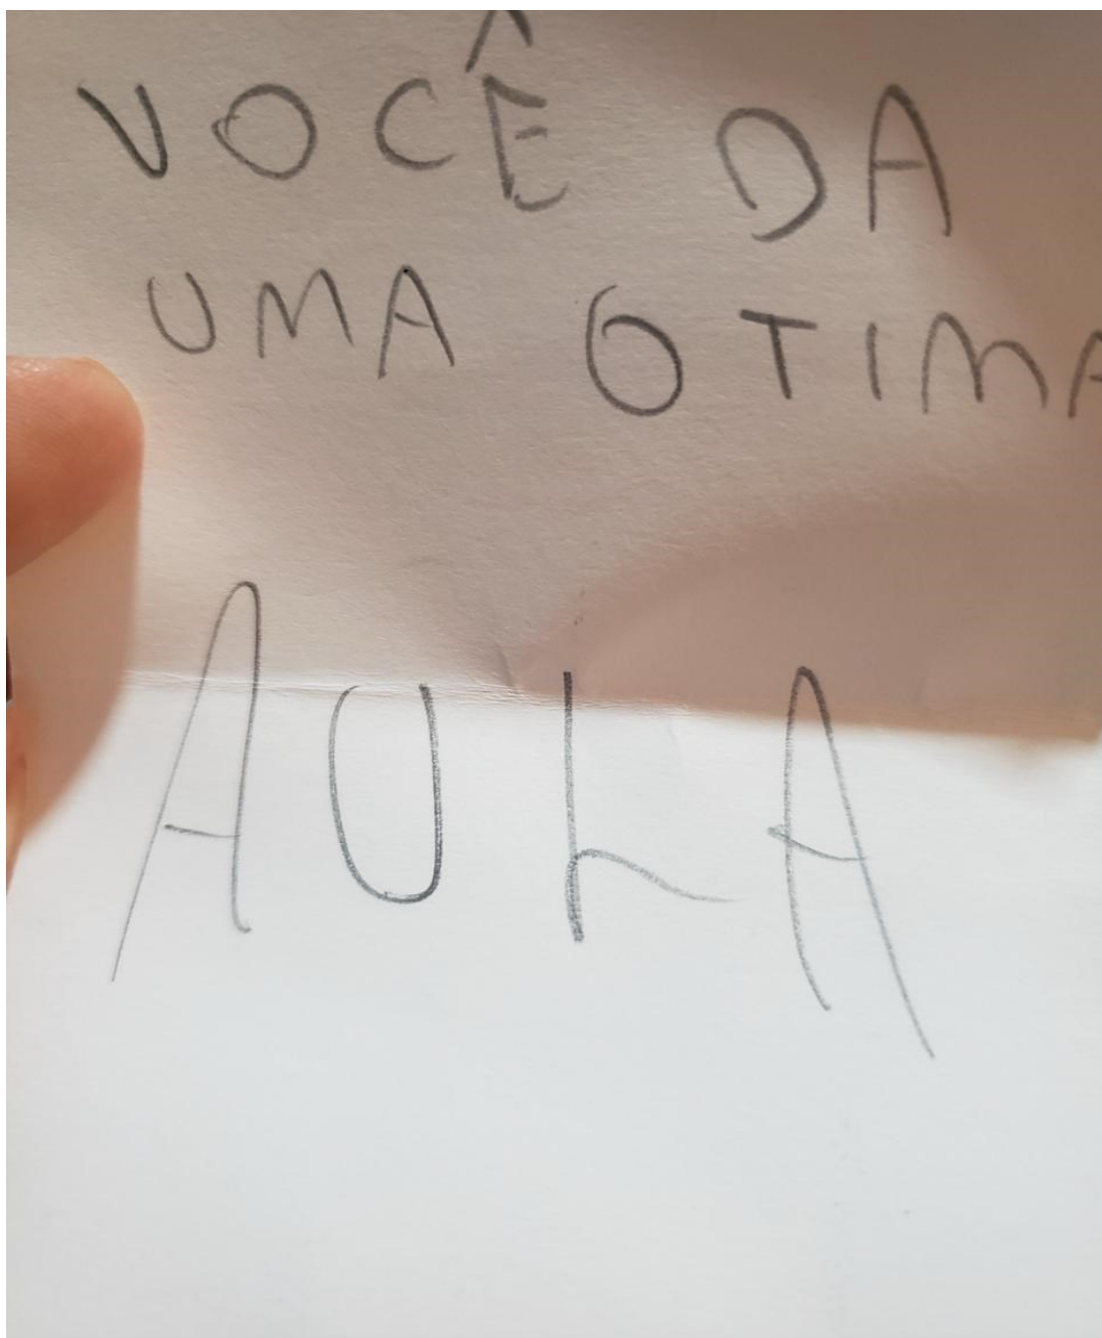 VOCÊ DA
UMA OTIMA
AULA